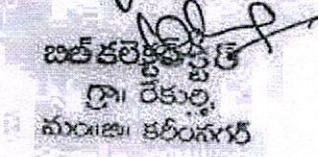 బిల్ కలెక్టర్
గ్రా॥ రేకుర్తి,
మం॥జి॥ కరీంనగర్